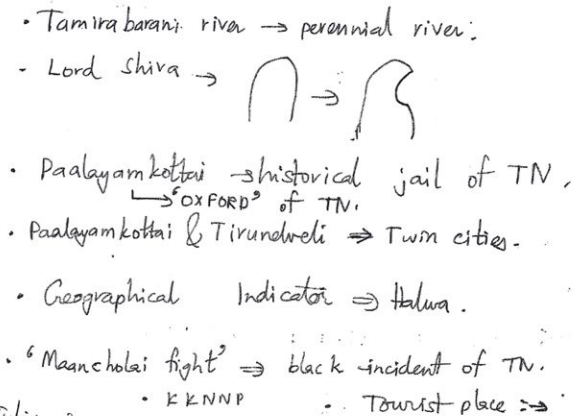 • Tamirabarani river → perennial river:
- Lord Shiva → →
• Paalayamkottai → historical jail of TN.
↳ 'OXFORD' of TN.
• Paalayamkottai & Tirunelveli ⇒ Twin cities.
• Geographical Indicator ⇒ Halwa.
• 'Maancholai fight' ⇒ black incident of TN.
• KKNNP • Tourist place :→